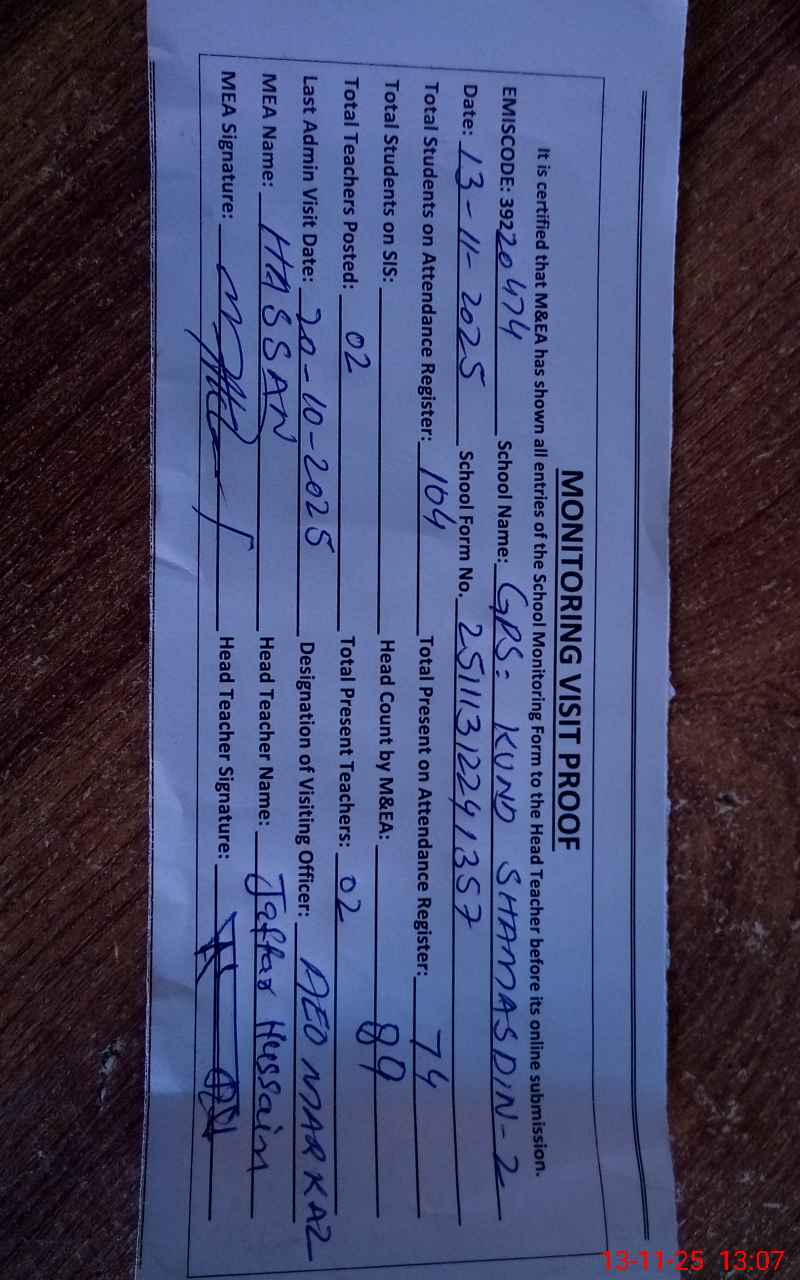 MONITORING VISIT PROOF
It is certified that M&EA has shown all entries of the School Monitoring Form to the Head Teacher before its online submission.
EMISCODE: 39220474 School Name: GPS: KUND SHAMASDIN-2
Date: 13-11-2025 School Form No. 25111312241357
Total Students on Attendance Register: 104 Total Present on Attendance Register: 74
Total Students on SIS: Head Count by M&EA: 89
Total Teachers Posted: 02 Total Present Teachers: 02
Last Admin Visit Date: 20-10-2025 Designation of Visiting Officer: AEO MARKAZ
MEA Name: HASSAN Head Teacher Name: Jaffar Hussain
MEA Signature: Head Teacher Signature:
13-11-25 13:07